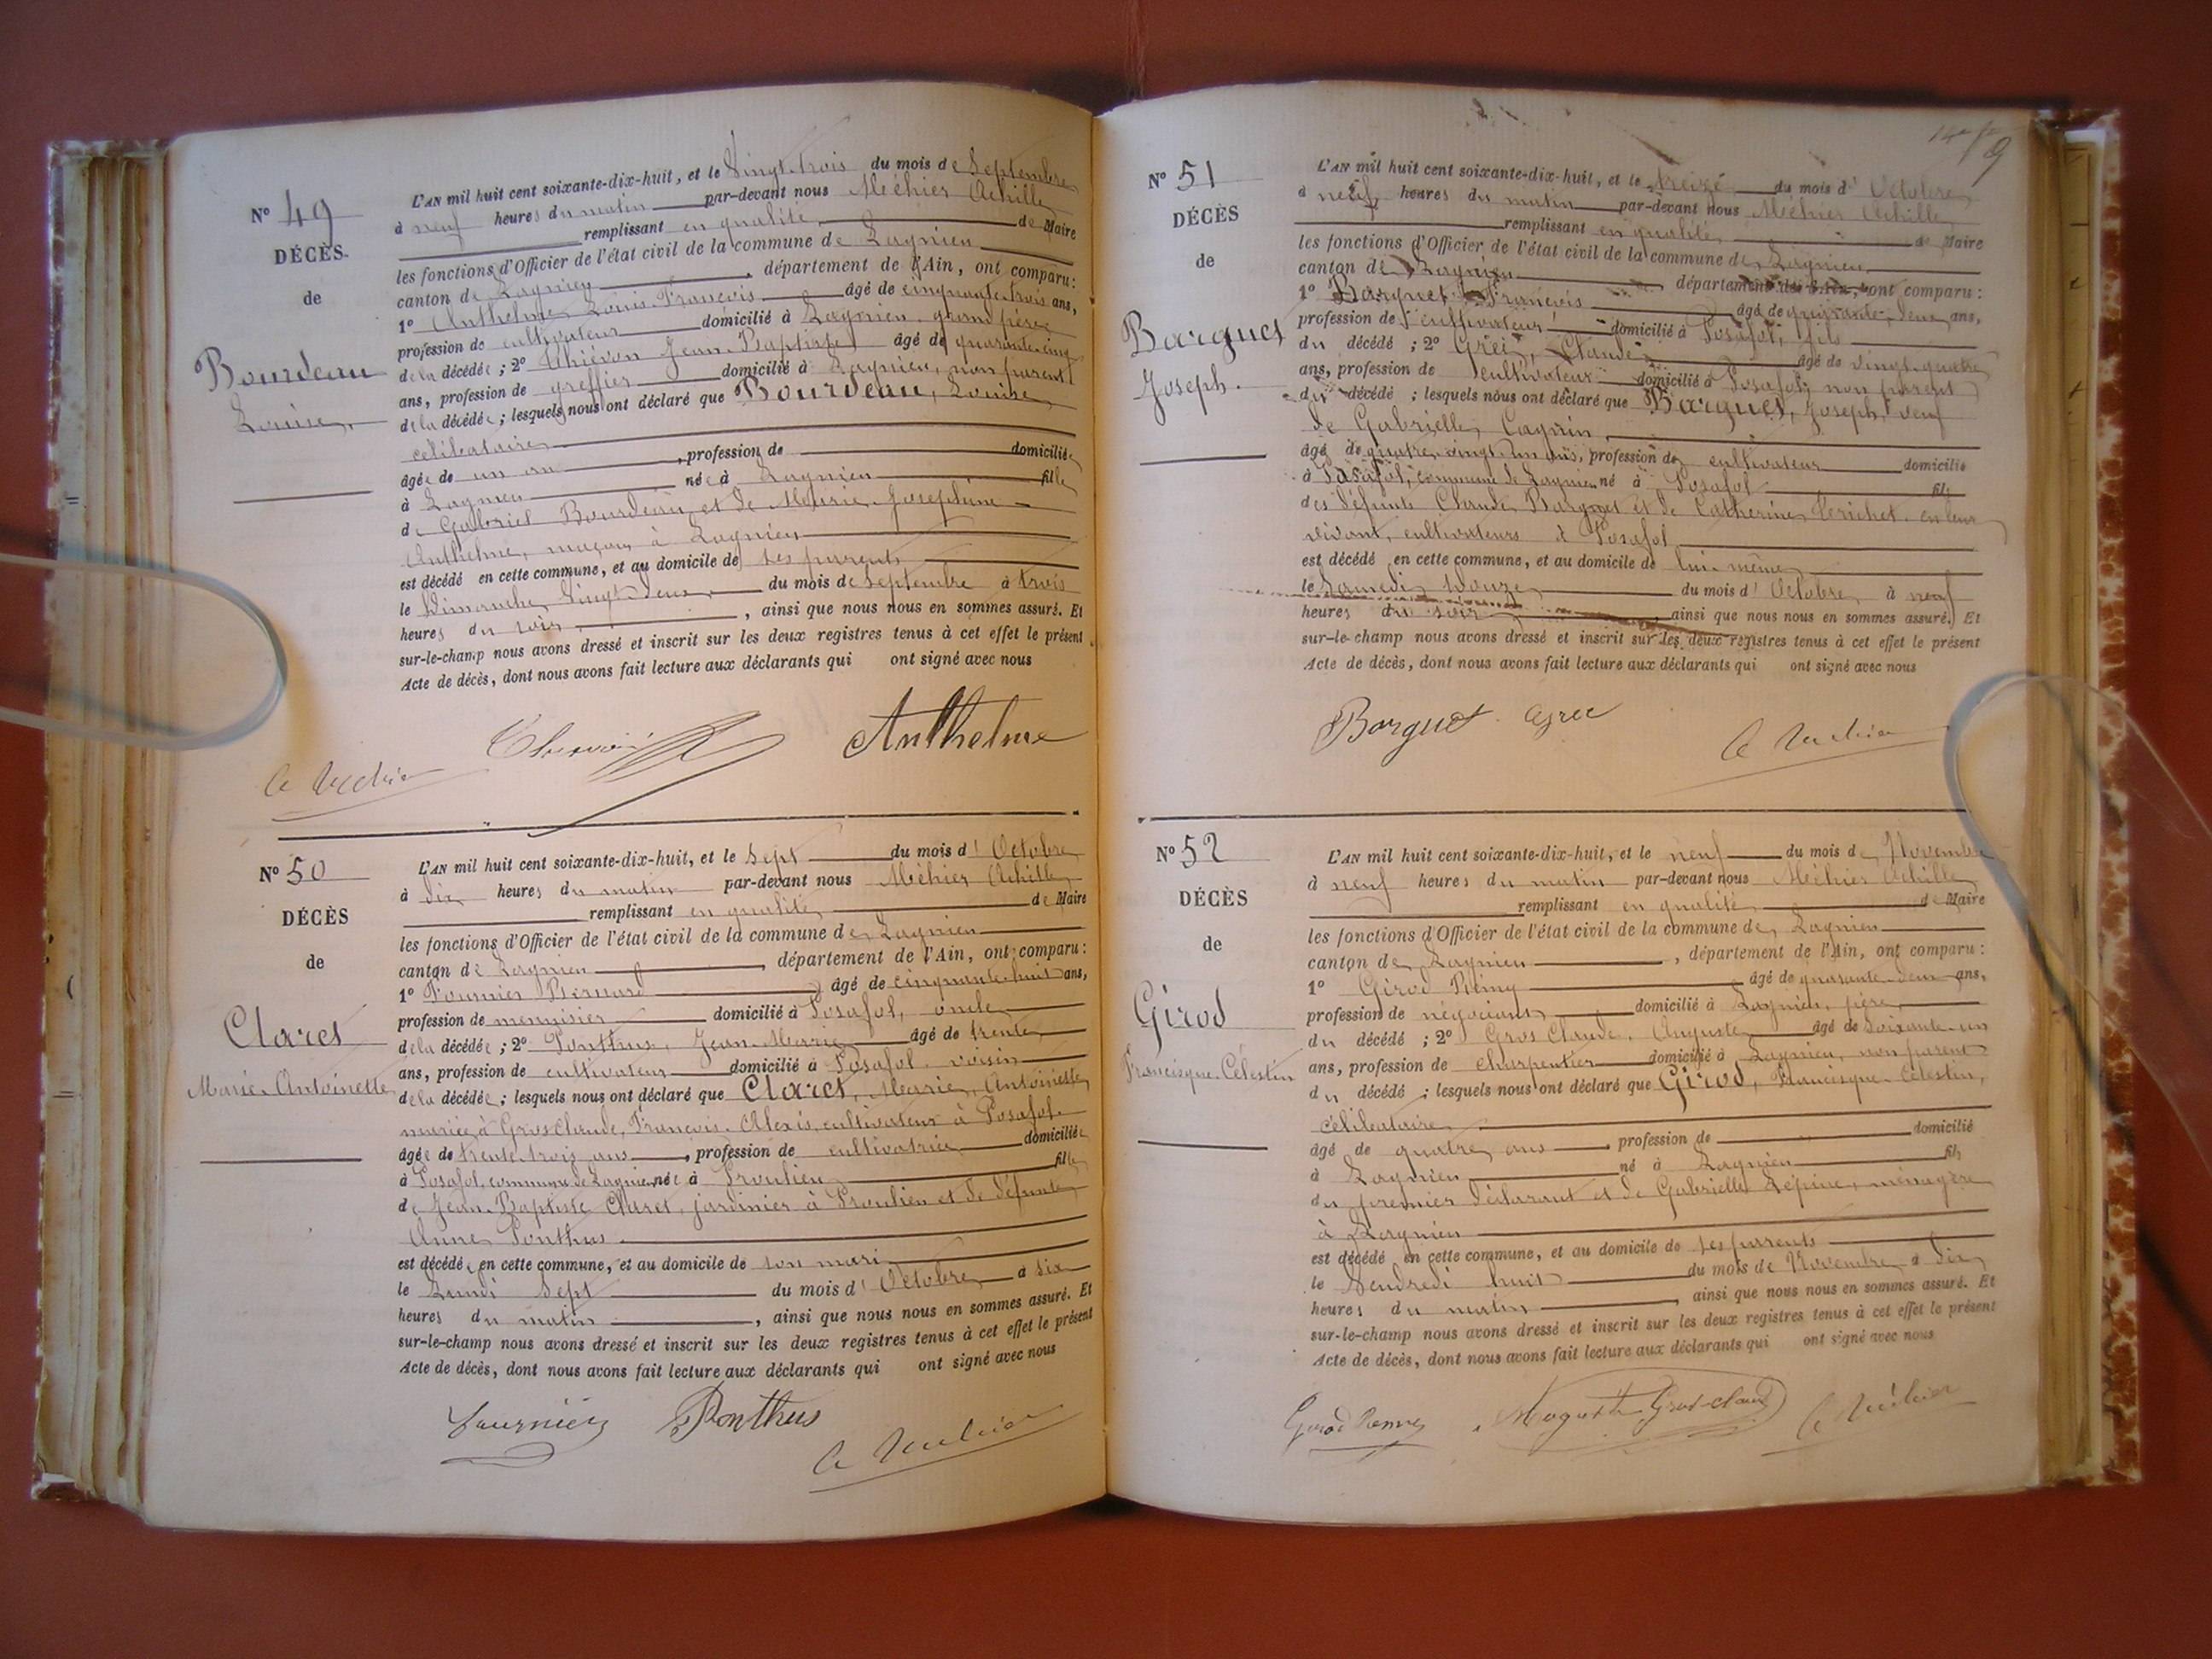 N° 49
DÉCÈS
de
Bourdeau
Louise
L'AN mil huit cent soixante-dix-huit, et le Vingt-trois du mois de Septembre
à neuf heures du matin par-devant nous Méhier Achille
remplissant en qualité de Maire
les fonctions d'Officier de l'état civil de la commune de Lagnieu
canton de Lagnieu, département de l'Ain, ont comparu:
1° Anthelme Louis François âgé de cinquante-trois ans,
profession de cultivateur domicilié à Lagnieu, grand père
de la décédée; 2° Jean-Baptiste âgé de quarante-cinq
ans, profession de greffier domicilié à Lagnieu, non parent
de la décédée; lesquels nous ont déclaré que Bourdeau, Louise,
célibataire
âgée de un an, profession de domiciliée
à Lagnieu née à Lagnieu fille
de Gabriel Bourdeau et de Marie Joséphine
Anthelme, maçon à Lagnieu
est décédé en cette commune, et au domicile de ses parents
le Dimanche Vingt-deux du mois de Septembre à trois
heures du soir, ainsi que nous nous en sommes assuré. Et
sur-le-champ nous avons dressé et inscrit sur les deux registres tenus à cet effet le présent
Acte de décès, dont nous avons fait lecture aux déclarants qui ont signé avec nous
Anthelme
N° 50
DÉCÈS
de
Claret
Marie-Antoinette
L'AN mil huit cent soixante-dix-huit, et le Sept du mois d'Octobre
à dix heures du matin par-devant nous Méhier Achille
remplissant en qualité de Maire
les fonctions d'Officier de l'état civil de la commune de Lagnieu
canton de Lagnieu, département de l'Ain, ont comparu:
1° Fournier Bernard âgé de cinquante-huit ans,
profession de menuisier domicilié à Posafol, oncle
de la décédée; 2° Ponthus, Jean-Marie âgé de trente
ans, profession de cultivateur domicilié à Posafol voisin
de la décédée; lesquels nous ont déclaré que Claret, Marie, Antoinette
mariée à Grosclaude, François-Alexis, cultivateur à Posafol
âgée de trente-trois ans, profession de cultivatrice domiciliée
à Posafol, commune de Lagnieu née à Proulieu fille
de Jean-Baptiste Claret, jardinier à Proulieu et de défunte
Anne Ponthus
est décédée en cette commune, et au domicile de son mari
le Lundi Sept du mois d'Octobre à six
heures du matin, ainsi que nous nous en sommes assuré. Et
sur-le-champ nous avons dressé et inscrit sur les deux registres tenus à cet effet le présent
Acte de décès, dont nous avons fait lecture aux déclarants qui ont signé avec nous
Fournier Ponthus
N° 51
DÉCÈS
de
Barguet
Joseph.
L'AN mil huit cent soixante-dix-huit, et le treize du mois d'Octobre
à neuf heures du matin par-devant nous Méhier Achille
remplissant en qualité de Maire
les fonctions d'Officier de l'état civil de la commune de Lagnieu
canton de Lagnieu département de l'Ain, ont comparu:
1° Barguet François âgé de quarante-deux ans,
profession de cultivateur domicilié à Posafol, fils
du décédé; 2° Claude âgé de vingt-quatre
ans, profession de cultivateur domicilié à Posafol, non parent
du décédé; lesquels nous ont déclaré que Barguet, Joseph, veuf
de Gabrielle
âgé de quatre-vingt-un ans, profession de cultivateur domicilié
à Posafol, commune de Lagnieu né à Posafol fils
des défunts Claude Barguet et de Catherine en leur
vivant, cultivateurs à Posafol
est décédé en cette commune, et au domicile de lui-même
le Samedi Douze du mois d'Octobre à neuf
heures du soir, ainsi que nous nous en sommes assuré. Et
sur-le-champ nous avons dressé et inscrit sur les deux registres tenus à cet effet le présent
Acte de décès, dont nous avons fait lecture aux déclarants qui ont signé avec nous
Barguet
N° 52
DÉCÈS
de
Girod
Francisque-Célestin
L'AN mil huit cent soixante-dix-huit, et le neuf du mois de Novembre
à neuf heures du matin par-devant nous Méhier Achille
remplissant en qualité de Maire
les fonctions d'Officier de l'état civil de la commune de Lagnieu
canton de Lagnieu, département de l'Ain, ont comparu:
1° Girod Rémy âgé de quarante-deux ans,
profession de négociant domicilié à Lagnieu, père
du décédé; 2° Gros Claude, Auguste âgé de soixante-un
ans, profession de charpentier domicilié à Lagnieu, non parent
du décédé; lesquels nous ont déclaré que Girod, Francisque-Célestin,
célibataire
âgé de quatre ans, profession de domicilié
à Lagnieu né à Lagnieu fils
du premier déclarant et de Gabrielle Lépine, ménagère
à Lagnieu
est décédé en cette commune, et au domicile de ses parents
le Vendredi huit du mois de Novembre à dix
heures du matin, ainsi que nous nous en sommes assuré. Et
sur-le-champ nous avons dressé et inscrit sur les deux registres tenus à cet effet le présent
Acte de décès, dont nous avons fait lecture aux déclarants qui ont signé avec nous